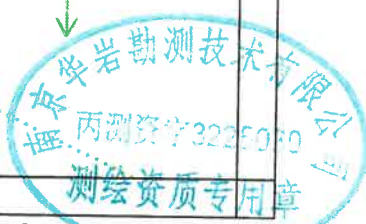 南京华岩勘测技术有限公司
丙测资字3225050
测绘资质专用章